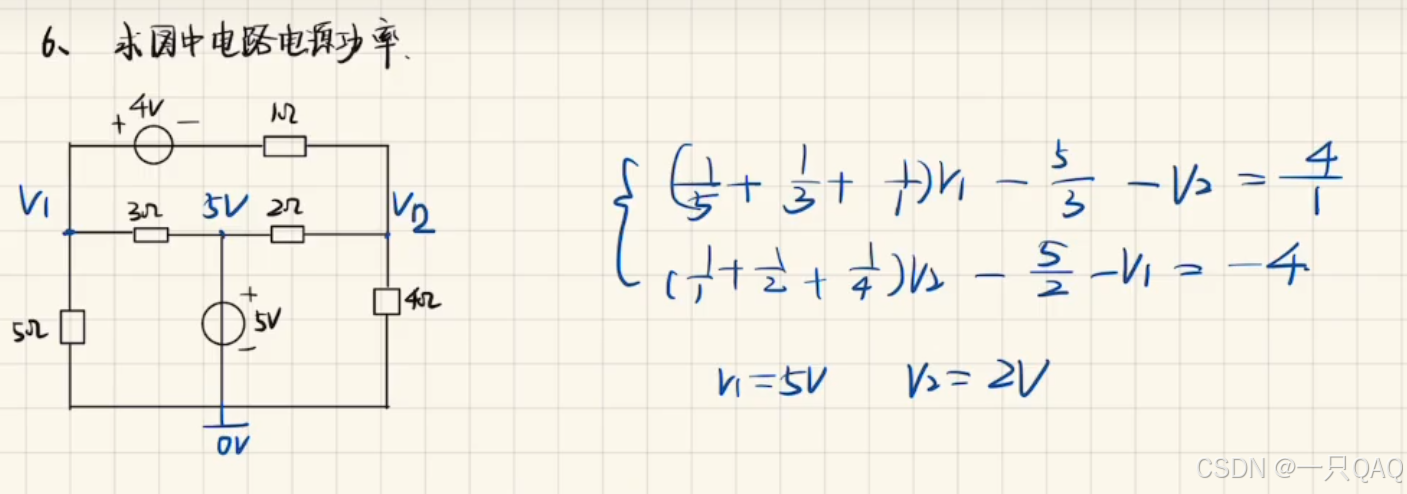 6、求图中电路电源功率.
+ 4V − 1Ω
V1 3Ω 5V 2Ω V2
5Ω + 5V − 4Ω
0V
{ (1/5 + 1/3 + 1/1)V1 − 5/3 − V2 = 4/1
(1/1 + 1/2 + 1/4)V2 − 5/2 − V1 = −4
V1 = 5V V2 = 2V
CSDN @一只QAQ